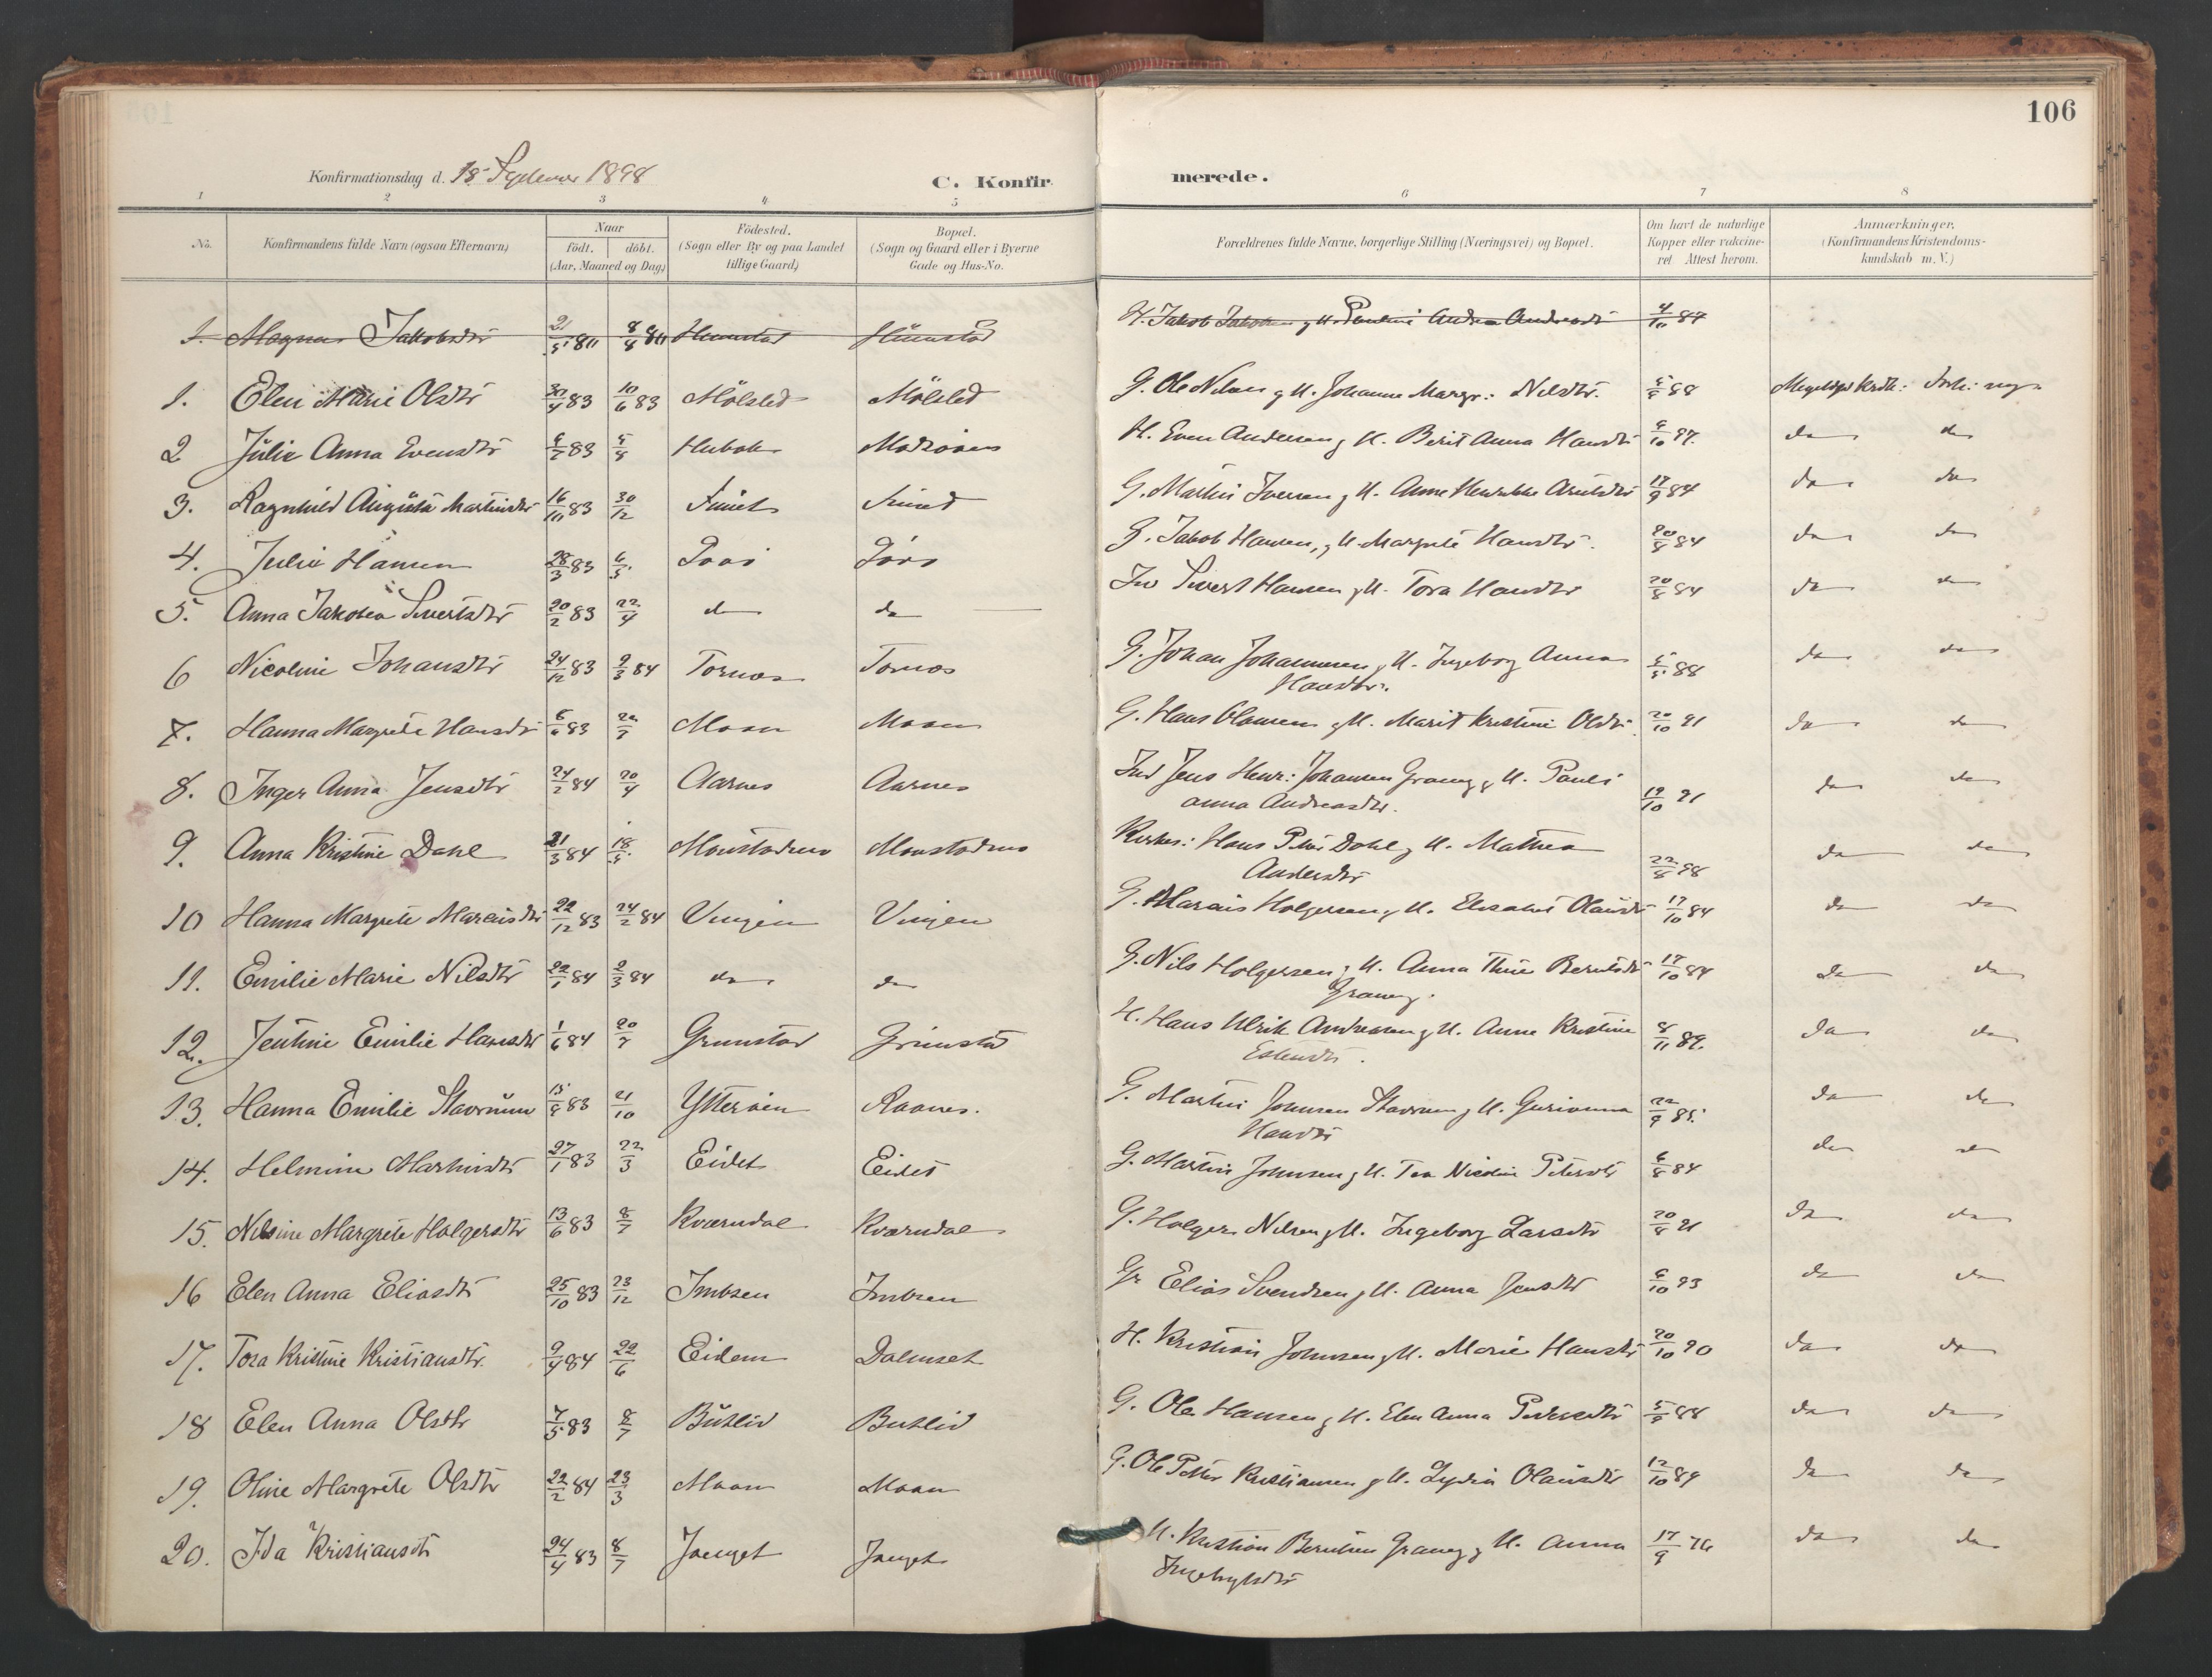 106
Konfirmationsdag d. 18 September 1898
C. Konfir merede.
1 2 3 4 5 6 7 8
No. Konfirmandens fulde Navn (ogsaa Efternavn) Naar födt. döbt. (Aar, Maaned og Dag) Födested. (Sogn eller By og paa Landet tillige Gaard) Bopæl. (Sogn og Gaard eller i Byerne Gade og Hus-No. Forældrenes fulde Navne, borgerlige Stilling (Næringsvei) og Bopæl. Om havt de naturlige Kopper eller vakcineret Attest herom. Anmærkninger. (Konfirmandens Kristendomskundskab m. V.)
1. Magna Jakobsdtr 8/8 Hunstad Hunstad H. Jakob Jakobsen g H. Andrea Andersdtr 4/10 84
1. Elen Marie Olsdtr 83 10/6 83 Mölsled Mölsled G. Ole Nilsen g H. Johanne Margr: Nilsdtr. 88
2 Julie Anna Evensdtr 83 Hubak H. Even Andersen g H. Berit Anna Hansdtr 97. do do
3. Ragnhild Augusta Martinsdtr 16/10 83 30/12 G. Martin Iversen g H. Anne 17/9 84 do do
4. Julie Hansen 28/3 83 6/5 G. Jakob Hansen, g H. Margrete Hansdtr. 20/8 84 do do
5. Anna Jakobea Sivertsdtr 20/2 83 22/4 do do Sivert Hansen g H. Tora Hansdtr 20/8 84 do do
6 Nicoline Johansdtr 24/12 83 2/3 84 Tornes Tornes G. Johan Johannesen g H. Ingeborg Anna 88 do do
Hansdtr.
7. Hanna Margrete Hansdtr 83 Moan Moan G. Hans Olausen g H. Marit Kristine Olsdtr 20/10 91 do do
8. Inger Anna Jensdtr 24/2 84 20/4 Aarnes Aarnes Ind Jens Henr: Johansen Graneg g H. Pauli 19/10 91 do do
anna Andreasdtr.
9. Anna Kristine Dahl 21/3 84 18/5 Hans Petter Dahl g H. Mathea 22/8 98 do do
Andersdtr
10 Hanna Margrete Maraisdtr 22/12 83 24/2 84 Vingen Vingen G. Marais Holgersen g H. Elisabet Olausdtr 17/10 84 do do
11. Emilie Marie Nilsdtr 22/1 84 2/3 84 do do G. Nils Holgersen g H. Anna Thrine Berntsdtr 17/10 84 do do
Graneg.
12. Jentine Emilie Hansdtr 1/6 84 20/7 Grunstad Grunstad H. Hans Ulrik Andreasen g H. Anne Kristine 8/11 89. do do
13. Hanna Emilie Stavrum 15/8 83 21/10 Ytteröien Raanes. G. Martin Johnsen Stavrum g H. Gurianna 22/9 85. do do
Hansdtr
14. Helmine Martinsdtr 27/1 83 22/3 Eidet Eidet G. Martin Johnsen g H. Nicoline Petersdtr 6/8 84 do do
15. Nilsine Margrete Holgersdtr 13/6 83 8/7 Kværndal Kværndal G. Holger Nilsen g H. Ingeborg Larsdtr 20/8 91 do do
16 Elen Anna Eliasdtr 25/10 83 23/12 Imbsen Imbsen Gr Elias Svendsen g H. Anna Jensdtr 6/10 93 do do
17. Tora Kristine Kristiansdtr. 9/4 84 22/6 Eidem Dalenset H. Kristian Johnsen g H. Marie Hansdtr 20/10 90 do do
18 Elen Anna Olsdtr 7/5 83 8/7 Buhlid Buhlid G. Ole Hansen g H. Elen Anna Pedersdtr 88 do do
19. Oline Margrete Olsdtr 22/2 84 23/3 Moan Moan G. Ole Petter Kristiansen g H. Lydia Olausdtr 12/10 89 do do
20. Ida Kristiansdtr 24/4 83 8/7 H. Kristian Berntsen Graneg g H. Anna 17/9 do do